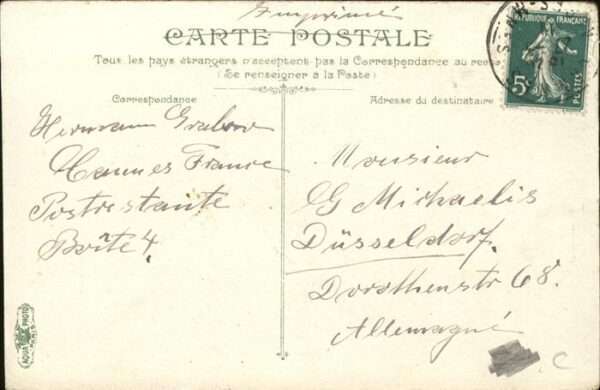 Imprimé
CARTE POSTALE
Tous les pays étrangers n'acceptent pas la Correspondance au recto
(Se renseigner à la Poste)
Correspondance
Adresse du destinataire
REPUBLIQUE FRANÇAISE
5c
POSTES
Hermann Grabow
Cannes France
Postrestante
Boîte 4.
Monsieur
G Michaelis
Düsseldorf.
Dorotheenstr 68.
Allemagne
AQUA PHOTO
C